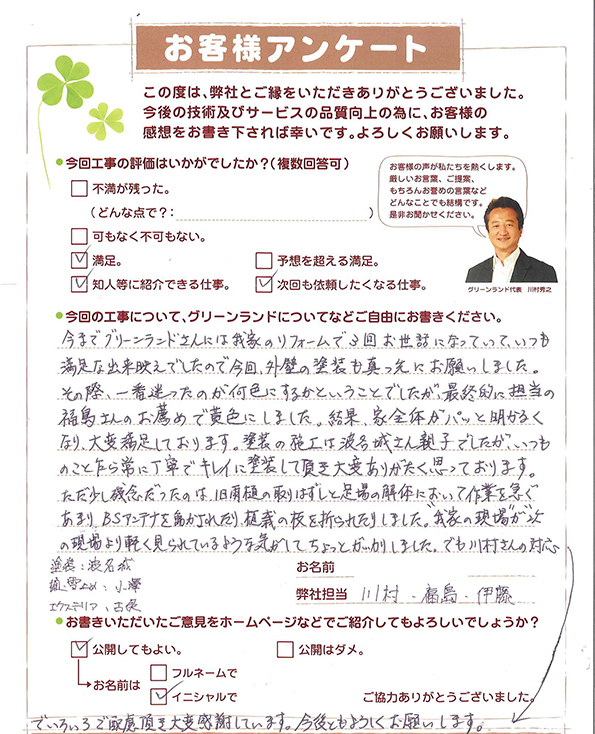 お客様アンケート
この度は、弊社とご縁をいただきありがとうございました。
今後の技術及びサービスの品質向上の為に、お客様の
感想をお書き下されば幸いです。よろしくお願いします。
●今回工事の評価はいかがでしたか?(複数回答可)
不満が残った。
(どんな点で?: )
可もなく不可もない。
満足。
予想を超える満足。
知人等に紹介できる仕事。
次回も依頼したくなる仕事。
お客様の声が私たちを熱くします。
厳しいお言葉、ご提案、
もちろんお誉めの言葉など
どんなことでも結構です。
是非お聞かせください。
グリーンランド代表 川村秀之
●今回の工事について、グリーンランドについてなどご自由にお書きください。
今までグリーンランドさんには我家のリフォームで3回お世話になっていて、いつも
満足な出来映えでしたので今回、外壁の塗装も真っ先にお願いしました。
その際、一番迷ったのが何色にするかということでしたが、最終的に担当の
福島さんのお薦めで黄色にしました。結果、家全体がパッと明かるく
なり、大変満足しております。塗装の施工は波名城さん親子でしたが、いつも
のことながら常に丁寧でキレイに塗装して頂き大変ありがたく思っております。
ただ少し残念だったのは、旧雨樋の取りはずしと足場の解体において作業を急ぐ
あまり、BSアンテナを動かされたり、植栽の枝を折られたりしました。"我家の現場"が次
の現場より軽く見られているような気がしてちょっとがっかりしました。でも川村さんの対応
塗装:波名城
樋、雪止め:小澤
エクステリア:古
お名前
弊社担当 川村・福島・伊藤
●お書きいただいたご意見をホームページなどでご紹介してもよろしいでしょうか?
公開してもよい。
公開はダメ。
お名前は
フルネームで
イニシャルで
ご協力ありがとうございました。
でいろいろご配慮頂き大変感謝しています。今後ともよろしくお願いします。